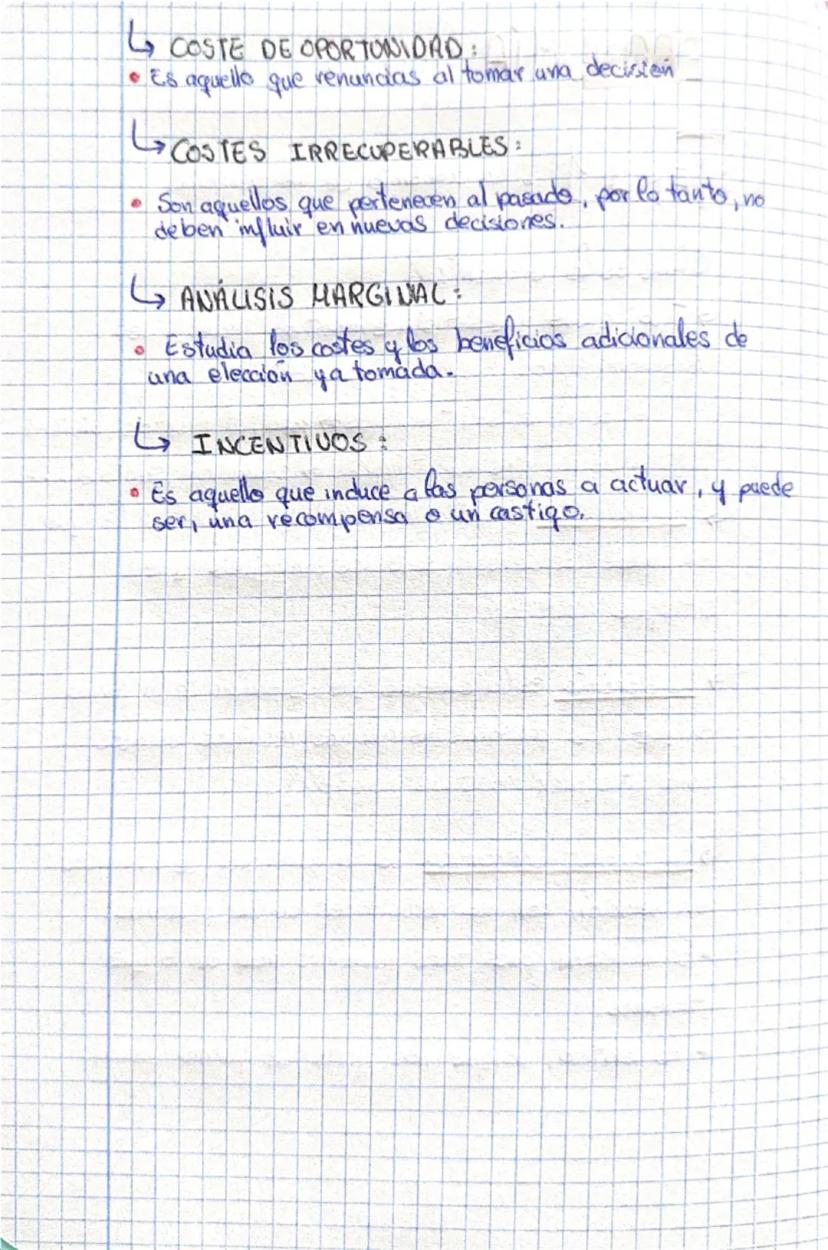 ↳ COSTE DE OPORTUNIDAD:
• Es aquello que renuncias al tomar una decisión
↳ COSTES IRRECUPERABLES:
• Son aquellos que pertenecen al pasado, por lo tanto, no
deben influir en nuevas decisiones.
↳ ANÁLISIS MARGINAL:
• Estudia los costes y los beneficios adicionales de
una elección ya tomada.
↳ INCENTIVOS:
• Es aquello que induce a las personas a actuar, y puede
ser, una recompensa o un castigo.